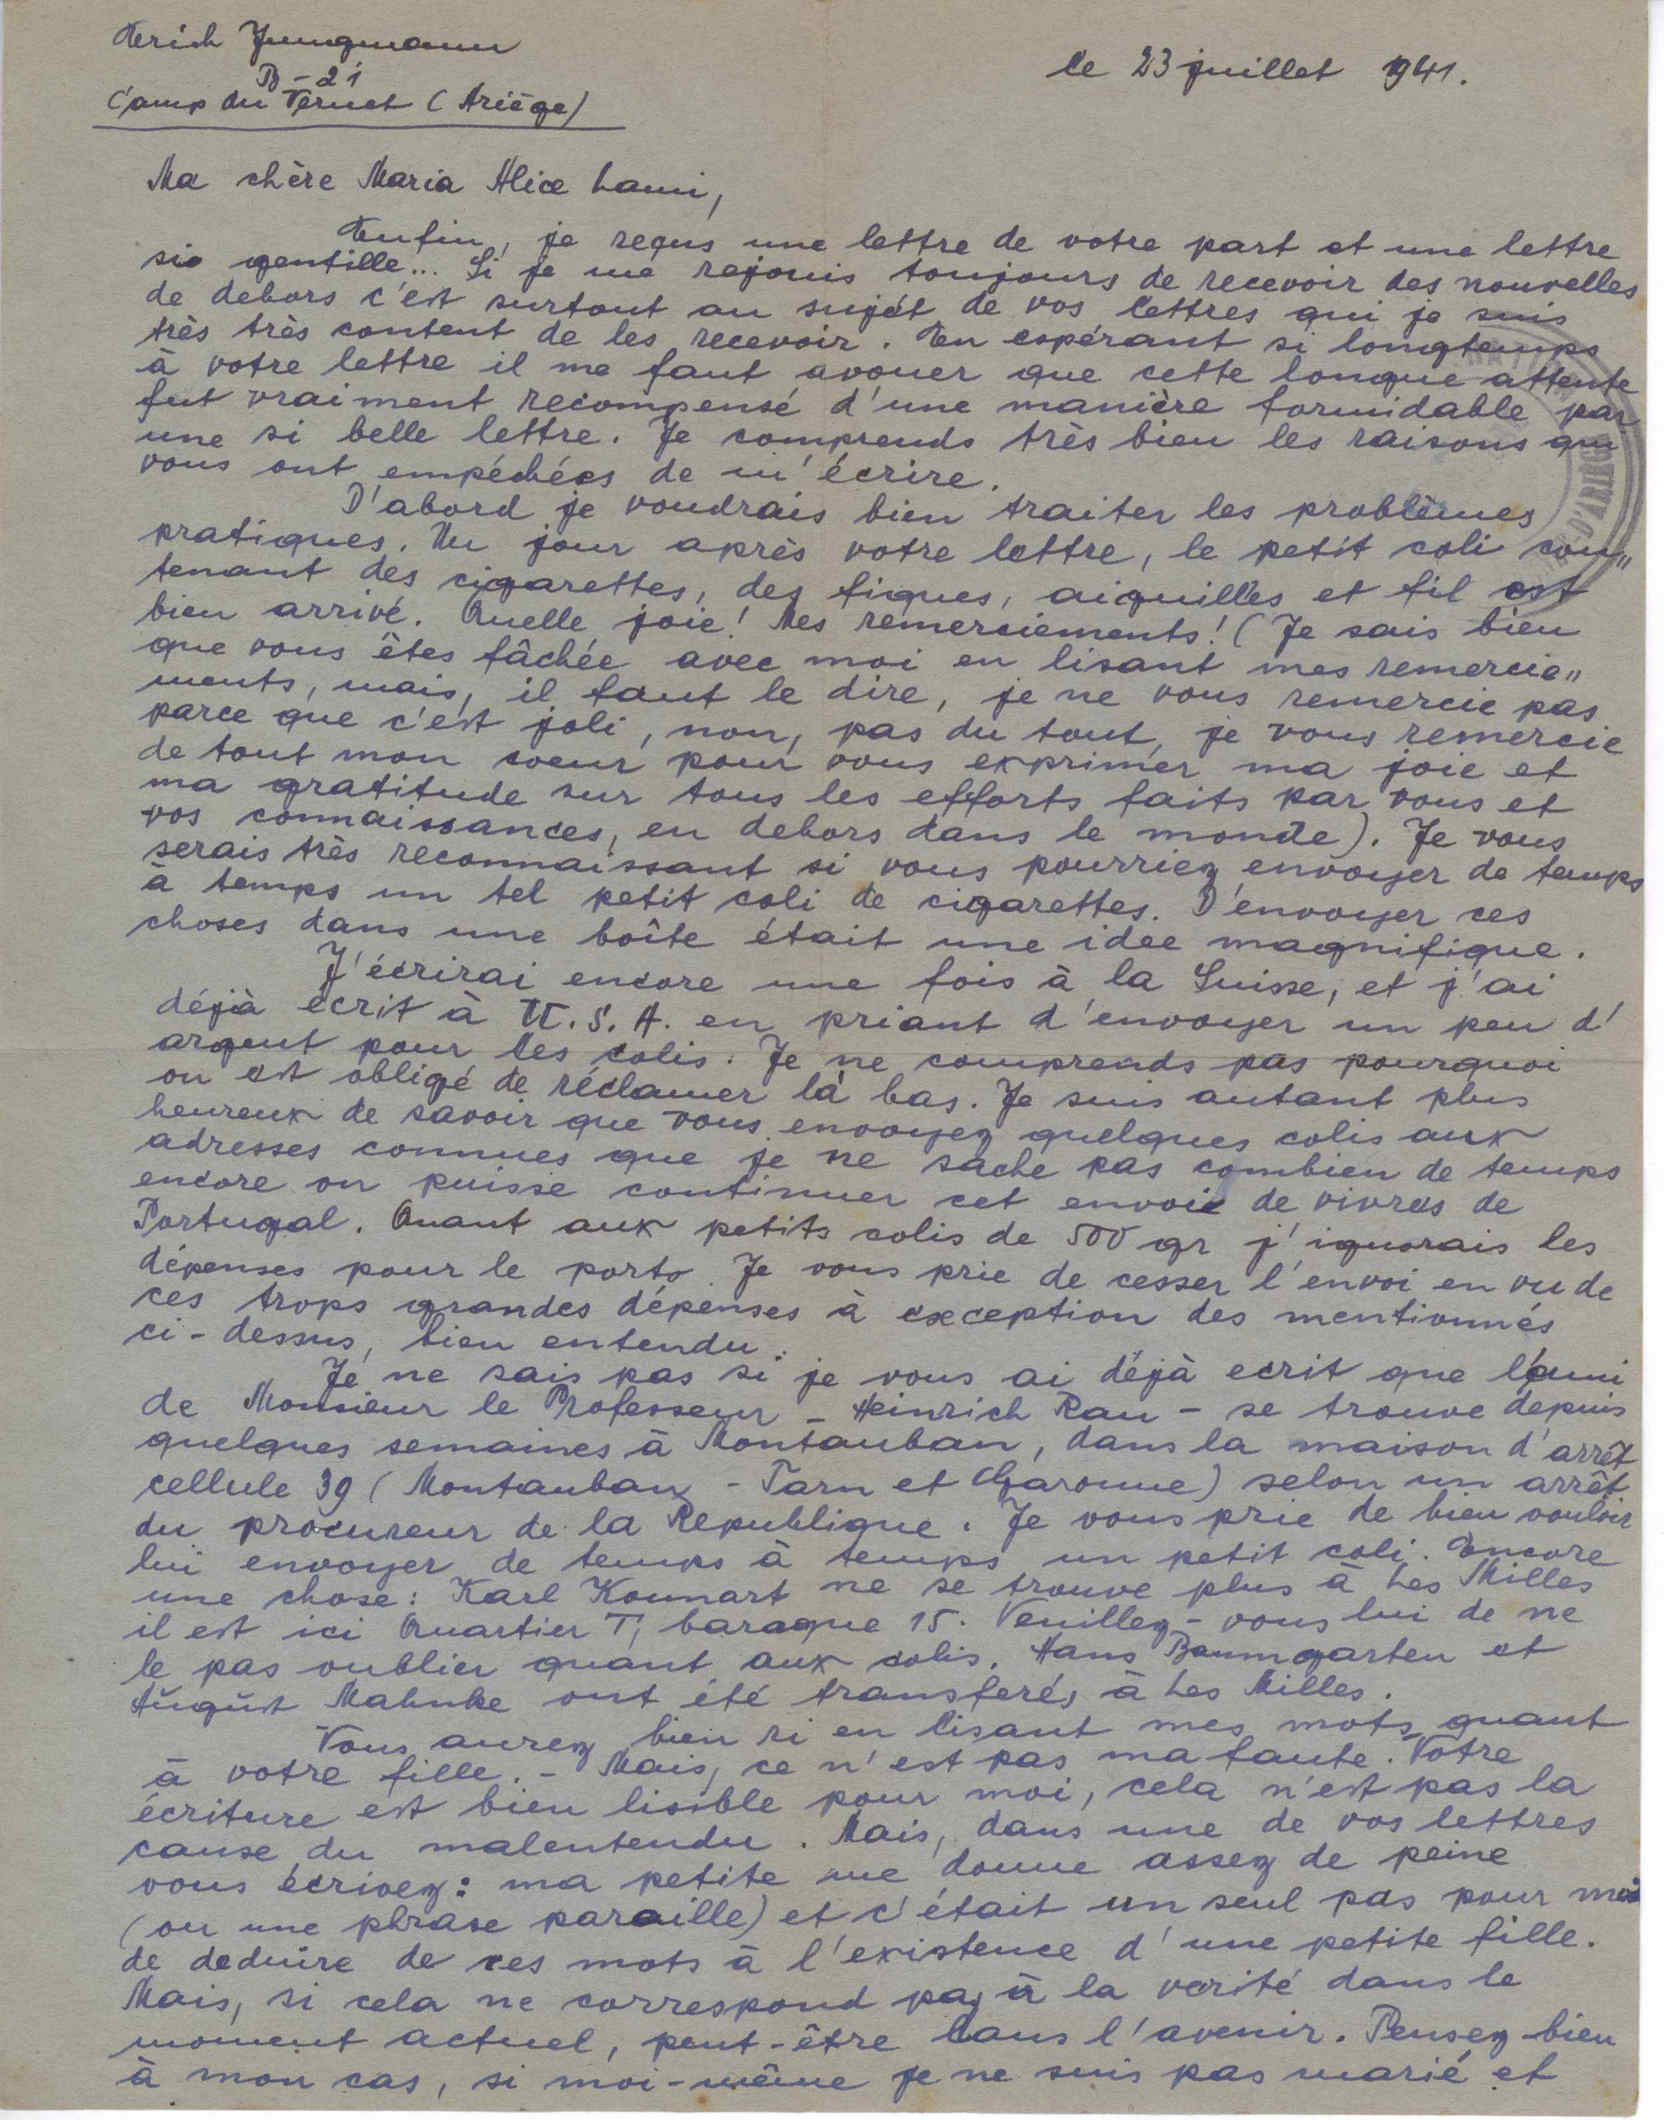 Erich Jungmann
B-21
Camp du Vernet (Ariège)
le 23 juillet 1941.
Ma chère Maria Alice Lami,
Enfin, je reçus une lettre de votre part et une lettre
si gentille... Si je me rejouis toujours de recevoir des nouvelles
de dehors c'est surtout au sujèt de vos lettres qui je suis
très très content de les recevoir. En espérant si longtemps
à votre lettre il me faut avouer que cette longue attente
fut vraiment recompensé d'une manière formidable par
une si belle lettre. Je comprends très bien les raisons qui
vous ont empéchées de m'écrire.
D'abord je voudrais bien traiter les problèmes
pratiques. Un jour après votre lettre, le petit coli con„
tenant des cigarettes, des figues, aiguilles et fil est
bien arrivé. Quelle joie! Mes remerciements! (Je sais bien
que vous êtes fâchée avec moi en lisant mes remercie„
ments, mais, il faut le dire, je ne vous remercie pas
parce que c'est joli, non, pas du tout, je vous remercie
de tout mon coeur pour vous exprimer ma joie et
ma gratitude sur tous les efforts faits par vous et
vos connaissances, en dehors dans le monde). Je vous
serais très reconnaissant si vous pourriez envoyer de temps
à temps un tel petit coli de cigarettes. D'envoyer ces
choses dans une boîte était une idee magnifique.
J'écrirai encore une fois à la Suisse, et j'ai
déjà écrit à U.S.A. en priant d'envoyer un peu d'
argent pour les colis. Je ne comprends pas pourquoi
on est obligé de réclamer là bas. Je suis autant plus
heureux de savoir que vous envoyez quelques colis aux
adresses connues que je ne sache pas combien de temps
encore on puisse continuer cet envoie de vivres de
Portugal. Quant aux petits colis de 500 gr j'ignorais les
dépenses pour le porto. Je vous prie de cesser l'envoi en vu de
ces trops grandes dépenses à exception des mentionnés
ci-dessus, bien entendu.
Je ne sais pas si je vous ai déjà ecrit que l'ami
de Monsieur le Professeur - Heinrich Rau - se trouve depuis
quelques semaines à Montauban, dans la maison d'arrêt
cellule 39 (Montauban - Tarn et Garonne) selon un arrêt
du procureur de la Republique. Je vous prie de bien vouloir
lui envoyer de temps à temps un petit coli. Encore
une chose: Karl Kounart ne se trouve plus à Les Milles
il est ici Quartier T, baraque 15. Veuillez-vous lui de ne
le pas oublier quant aux colis. Hans Baumgarten et
August Mahnke ont été transferés à Les Milles.
Vous aurez bien ri en lisant mes mots quant
à votre fille. - Mais, ce n'est pas ma faute. Votre
écriture est bien lisible pour moi, cela n'est pas la
cause du malentendu. Mais, dans une de vos lettres
vous écrivez: ma petite me donne assez de peine
(ou une phrase paraille) et c'était un seul pas pour moi
de deduire de ces mots à l'existence d'une petite fille.
Mais, si cela ne correspond pas à la verité dans le
moment actuel, peut-être dans l'avenir. Pensez bien
à mon cas, si moi-même je ne suis pas marié et